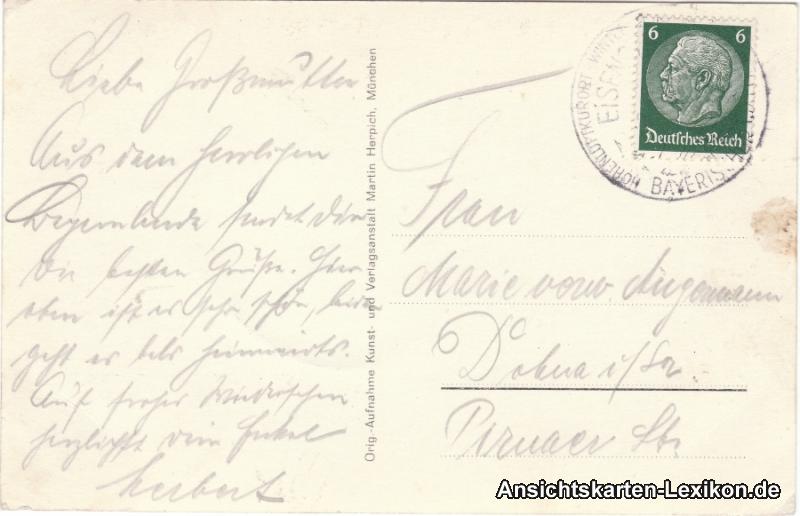 Liebe Großmutter
Aus dem herrlichen
sendet dir
die besten Grüße. Hier
oben ist es sehr schön, leider
geht es bald heimwärts.
Auf frohes Wiedersehen
herzlichst dein Enkel
Herbert
Orig.-Aufnahme Kunst- und Verlagsanstalt Martin Herpich, München
6 6
Deutsches Reich
HÖHENLUFTKURORT
BAYERIS
Frau
Marie verw.
Dohna i/Sa
Pirnaer Str
Ansichtskarten-Lexikon.de